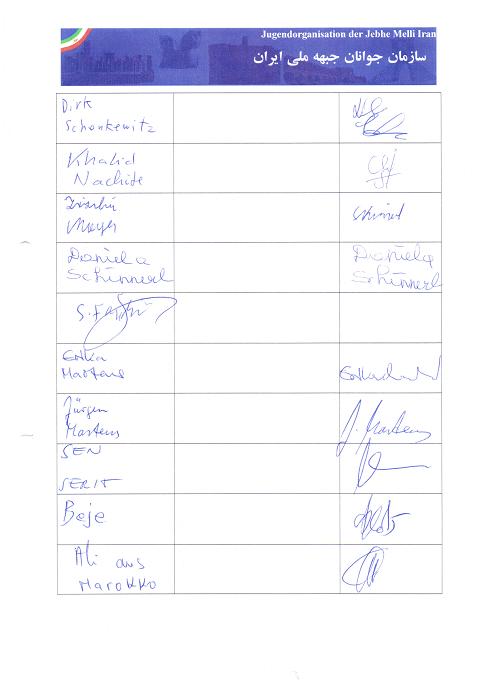 Jugendorganisation der Jebhe Melli Iran
سازمان جوانان جبهه ملی ایران
Dirk
Schonkewitz
Khalid
Nachite
Meyer
Daniela Daniela
Schünnerl Schünnerl
S.
Erika
Martens
Jürgen
Martens J. Martens
SEN
SERIT
Beje
Ali aus
Marokko